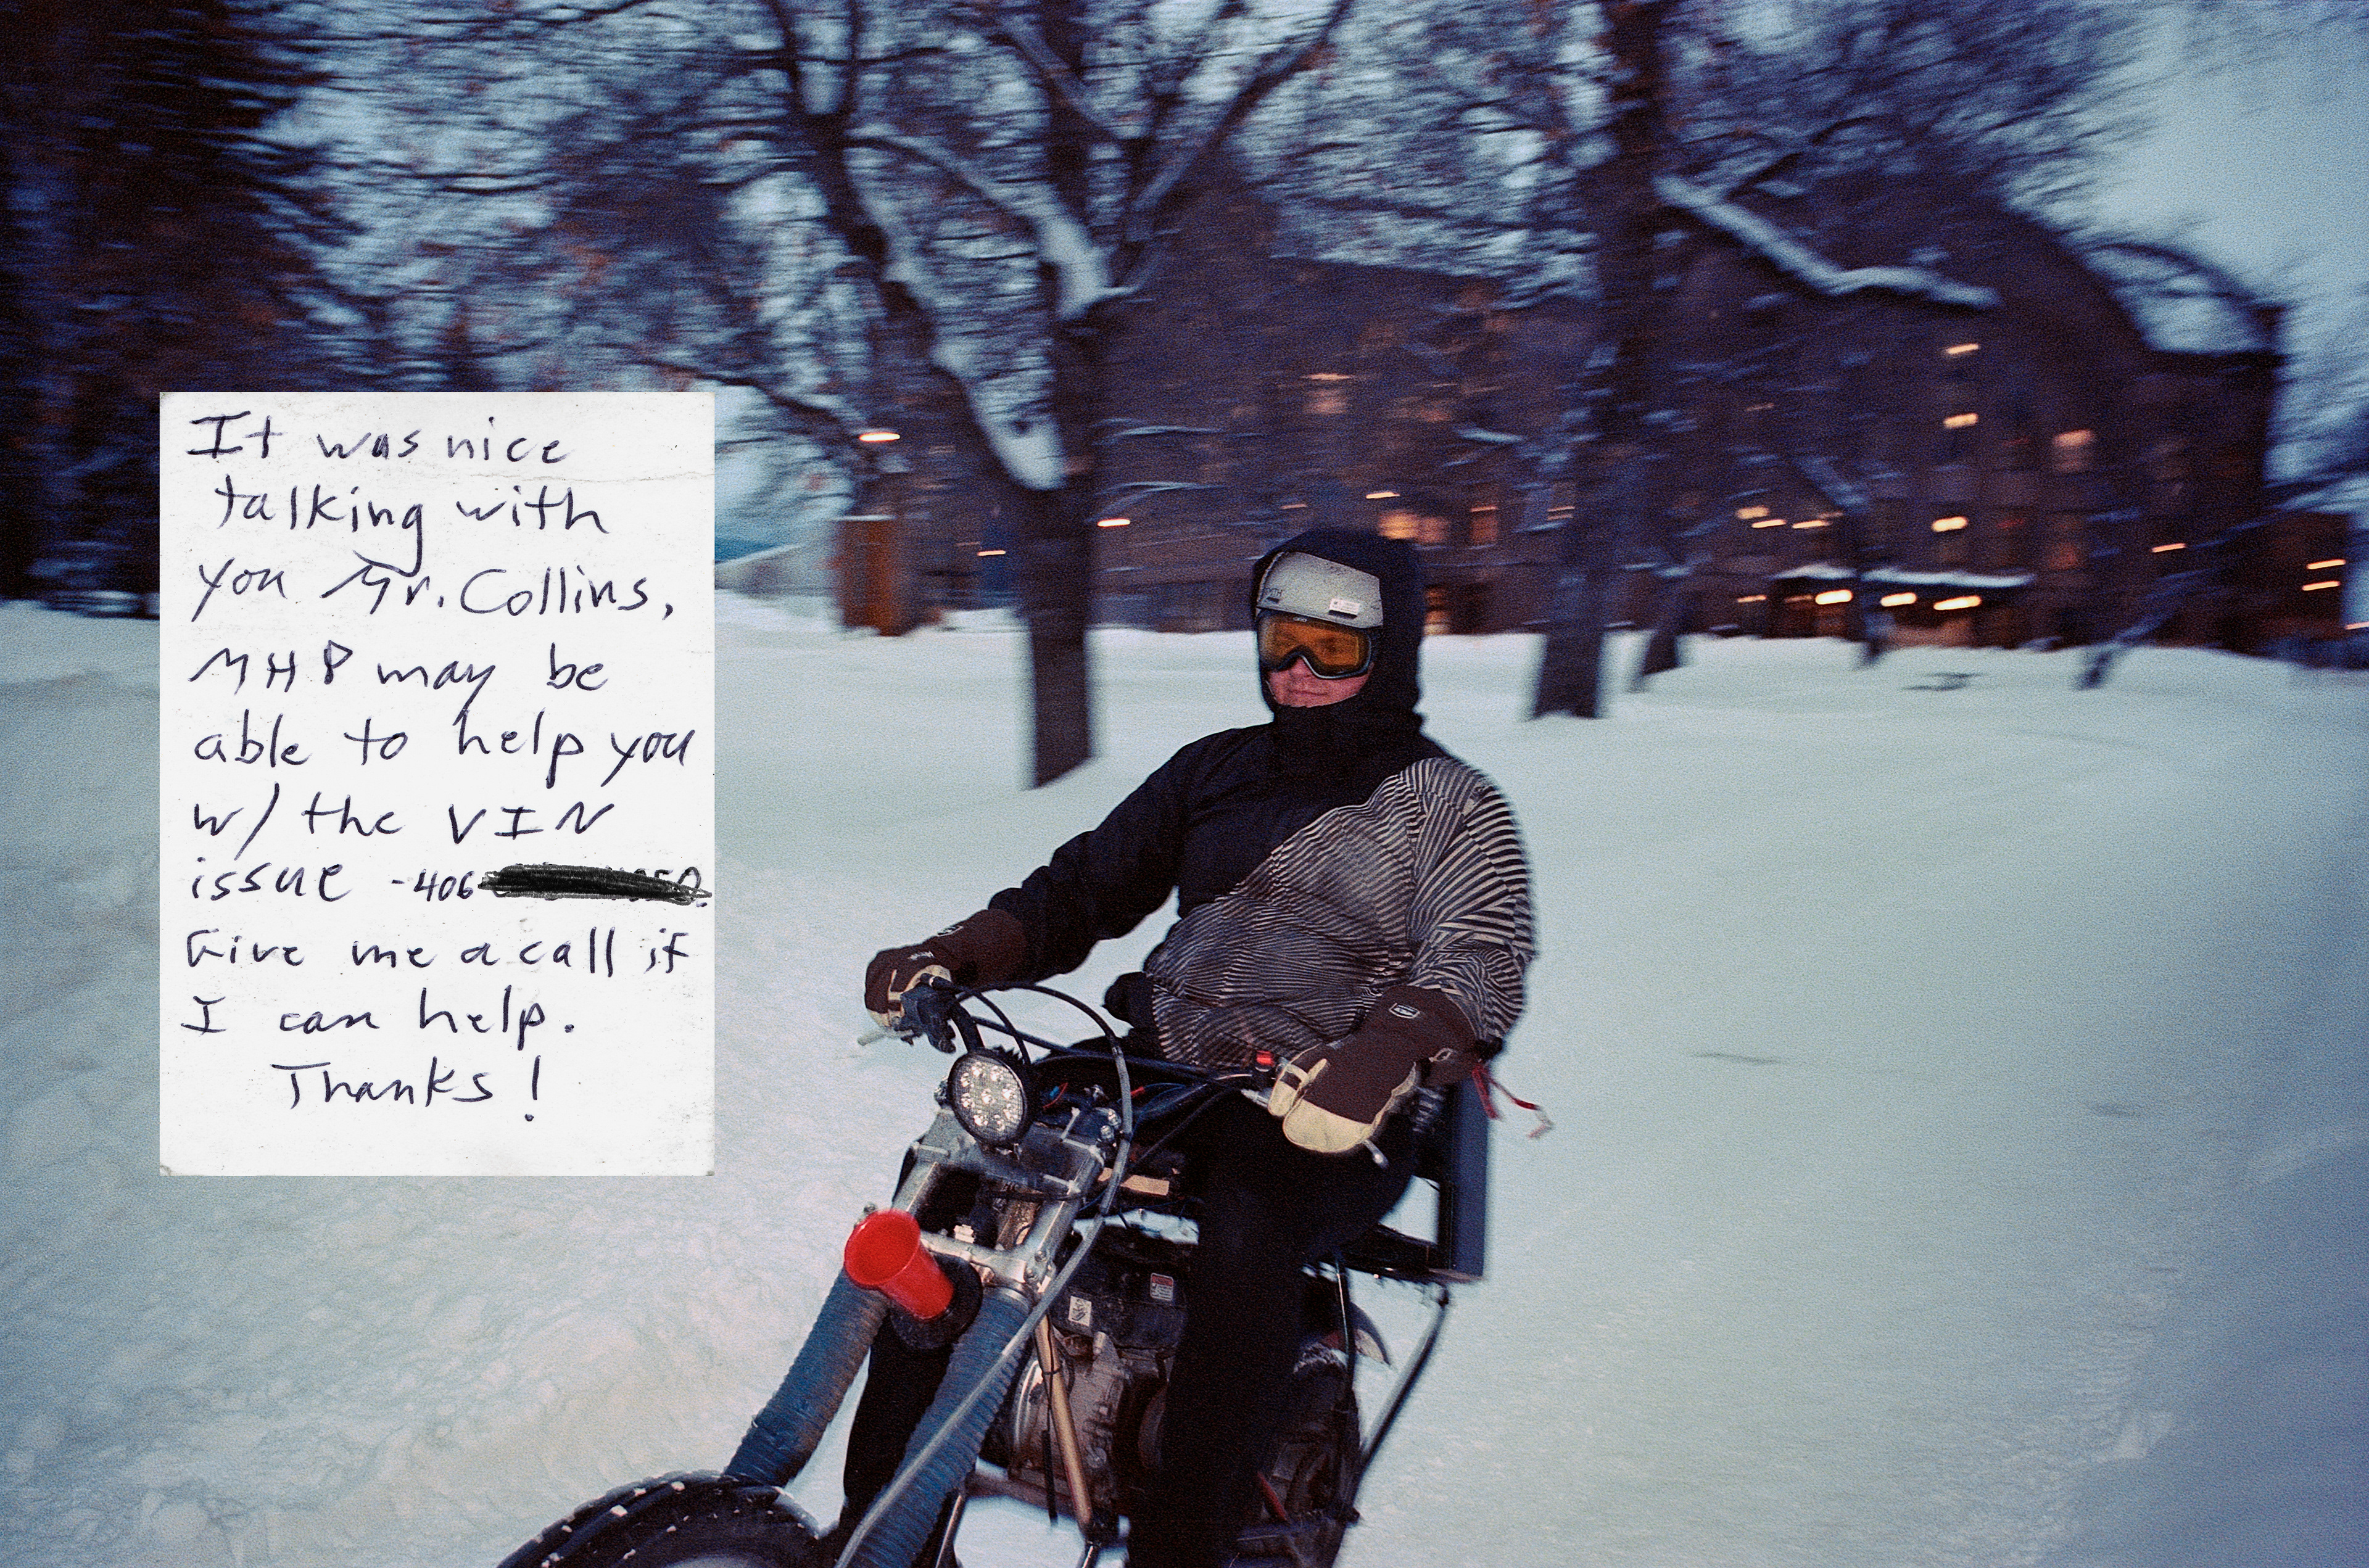 It was nice
talking with
you Mr. Collins,
MHP may be
able to help you
w/ the VIN
issue - 406
Give me a call if
I can help.
Thanks!